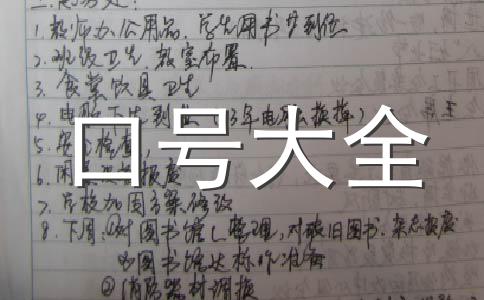 二.总务处:
1.教师办公用品、学生图书要到位
2.班级卫生、教室布置.
3.食堂饮具卫生
4.电脑下
口号大全
5.安全检查,
6.报废
7.学校加固方案修改
8.下周:①对图书馆(整理,对破旧图书、杂志报废
图书馆达标作准备
②消防器材调换